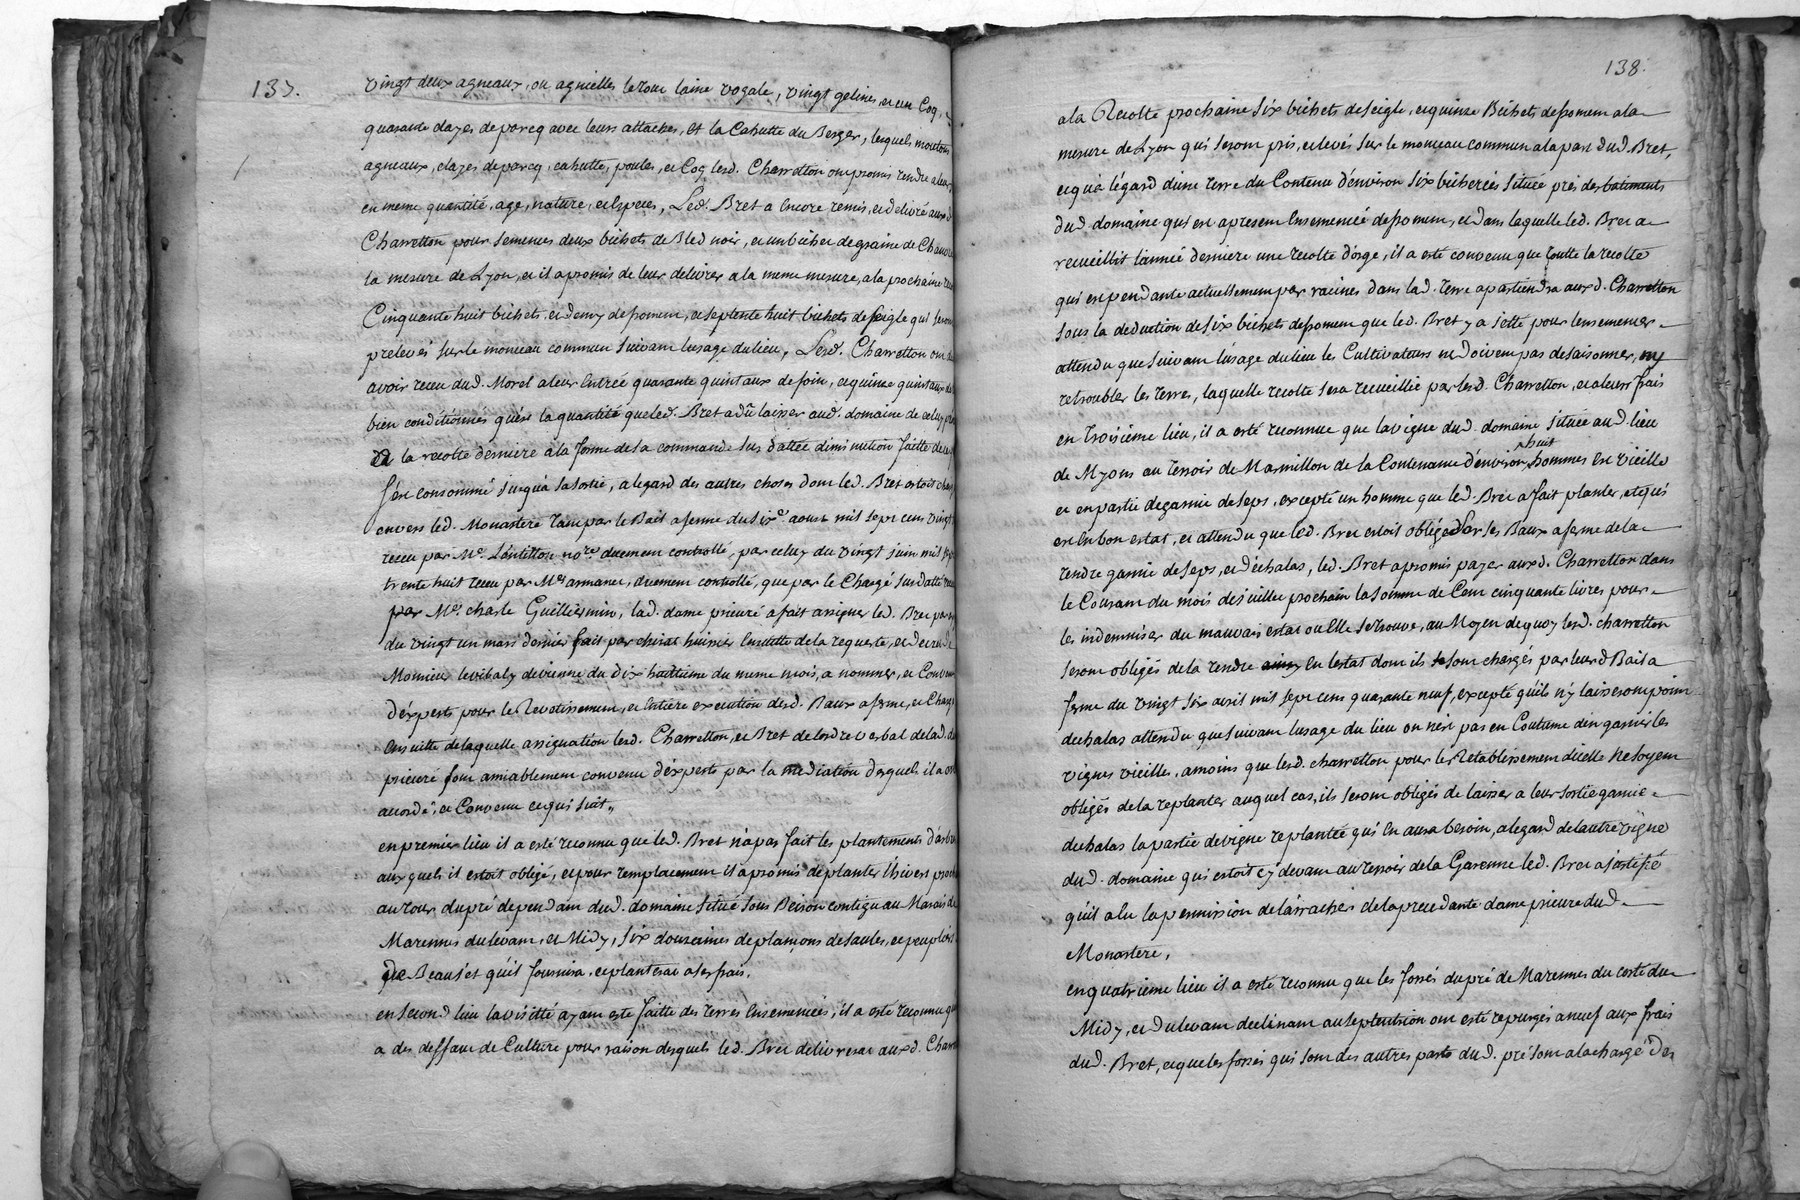 137.
vingt deux agneaux, ou agnielles le tout laine vogale, vingt gelines, et un Coq,
quarante clayes de parcq avec leurs attaches, et la Cahutte du Berger, lesquels moutons
agneaux, clayes de parcq, cahutte, poules, et Coq lesd. Charretton ont promis rendre a leur
en meme quantité, age, nature, et especes, Led. Bret a Encore remis, et delivré auxd
Charretton pour semences deux bichets de Bled noir, et un bichet de graine de Chanvre
la mesure de Lyon, et il a promis de leur delivrer a la meme mesure, a la prochaine
Cinquante huit bichets, et demy de froment, et septente huit bichets de seigle qui seront
prelevés sur le monceau commun suivant lusage du lieu, Lesd. Charretton ont
avoir receu dud. Morel a leur Entrée quarante quintaux de foin, et quinze quintaux de
bien conditionnés qu'est la quantité que led. Bret a dû laisser aud. domaine de celuy
de la recolte derniere a la forme de sa commande sus dattée diminution faitte de ce
s'en consommé jusqu'à sa sortie, a legard des autres choses dont led. Bret estoit
envers led. Monastere tant par le Bail a ferme du six.e aoust mil sept cens vingt
receu par M.e Lentillon no.re duement controllé, par celuy du vingt juin mil sept
trente huit receu par M.e armanet, duement controllé, que par le Chargé susdatté
par M.e charle Guilliermin, lad. dame prieuré a fait assigner led. Bret par
du vingt un mars dernier fait par chirat huissier Ensuitte de la requeste, et decret de
Monsieur le vibaly de vienne du dix huittieme du meme mois, a nommer, et Convenir
d'experts pour le Revetissement, et Entiere execution desd. Baux a ferme, et Chargé
Ensuitte de laquelle assignation lesd. Charretton, et Bret de lordre verbal de lad.
prieuré sont amiablement convenu d'experts par la mediation desquels il a
accordé, et Convenu ce qui suit,
en premier lieu il a esté reconnu que led. Bret n'a pas fait les plantements d'arbres
aux quels il estoit obligé, et pour remplacement il a promis de planter l'hivert
au tour du pré dependant dud. domaine situé sous Beison contigu au Marais de
Marennes du levant, et Midy, six douzaines de plançons de saules, et peupliers
de Beauset qu'il fournira, et planterat a ses frais.
en second lieu la visitte ayant esté faitte des terres Ensemencées, il a esté reconnu
a des deffaut de Culture pour raison desquels led. Bret delivrerat auxd. Charretton
138.
a la Recolte prochaine six bichets de seigle, et quinze Bichets de froment a la
mesure de Lyon qui seront pris, et levés sur le monceau commun a la part dud. Bret,
et qu'a l'égard d'une terre du Contenu d'environ six bicherées située près des batiments
dud. domaine qui est a present Ensemencée de froment, et dans laquelle led. Bret a
recueillit l'année derniere une recolte d'orge, il a esté convenu que toutte la recolte
qui est pendante actuellement par racines dans lad. terre apartiendra auxd. Charretton
sous la deduction de six bichets de froment que led. Bret y a jetté pour lensemencer
attendu que suivant l'usage du lieu les Cultivateurs ne doivent pas desaisonner, ny
retroubler les terres, laquelle recolte sera recueillie par lesd. Charretton, et a leurs frais
en Troisième lieu, il a esté reconnue que la vigne dud. domaine située aud. lieu
de Myons au terroir de Marmillon de la Contenance d'environ huit hommes En vieille
et en partie degarnie de seps, excepté un homme que led. Bret a fait planter, et qu'i
est En bon estat, et attendu que led. Bret estoit obligé par ses Baux a ferme de la
rendre garnie de seps, et d'echalas, led. Bret a promis payer auxd. Charretton dans
le Courant du mois de juillet prochain la somme de Cent cinquante livres pour
les indemniser du mauvais estat ou Elle se trouve, au Moyen de quoy lesd. charretton
seront obligés de la rendre En lestat dont ils se sont chargés par leurd Bail a
ferme du vingt six avril mil sept cens quarante neuf, excepté qu'ils n'y laisseront point
d'echalas attendu que suivant lusage du lieu on n'est pas en Coutume d'en garnir les
vignes vieilles, a moins que lesd. charretton pour le Retablissement d'icelle ne soyent
obligés de la replanter auquel cas, ils seront obligés de laisser a leur sortie garnie
d'echalas la partie de vigne replantée qui En aura besoin, a legard de lautre vigne
dud. domaine qui estoit cy devant au terroir de la Garenne led. Bret a justifié
qu'il a Eu la permission de l'arracher de la precedante dame prieure dud.
Monastere,
en quatrieme lieu il a esté reconnu que les fossés du pré de Marennes du costé du
Midy, et du levant declinant au septentrion ont esté repurgés a neuf aux frais
dud. Bret, et que les fossés qui sont des autres parts dud. pré sont a la charge des